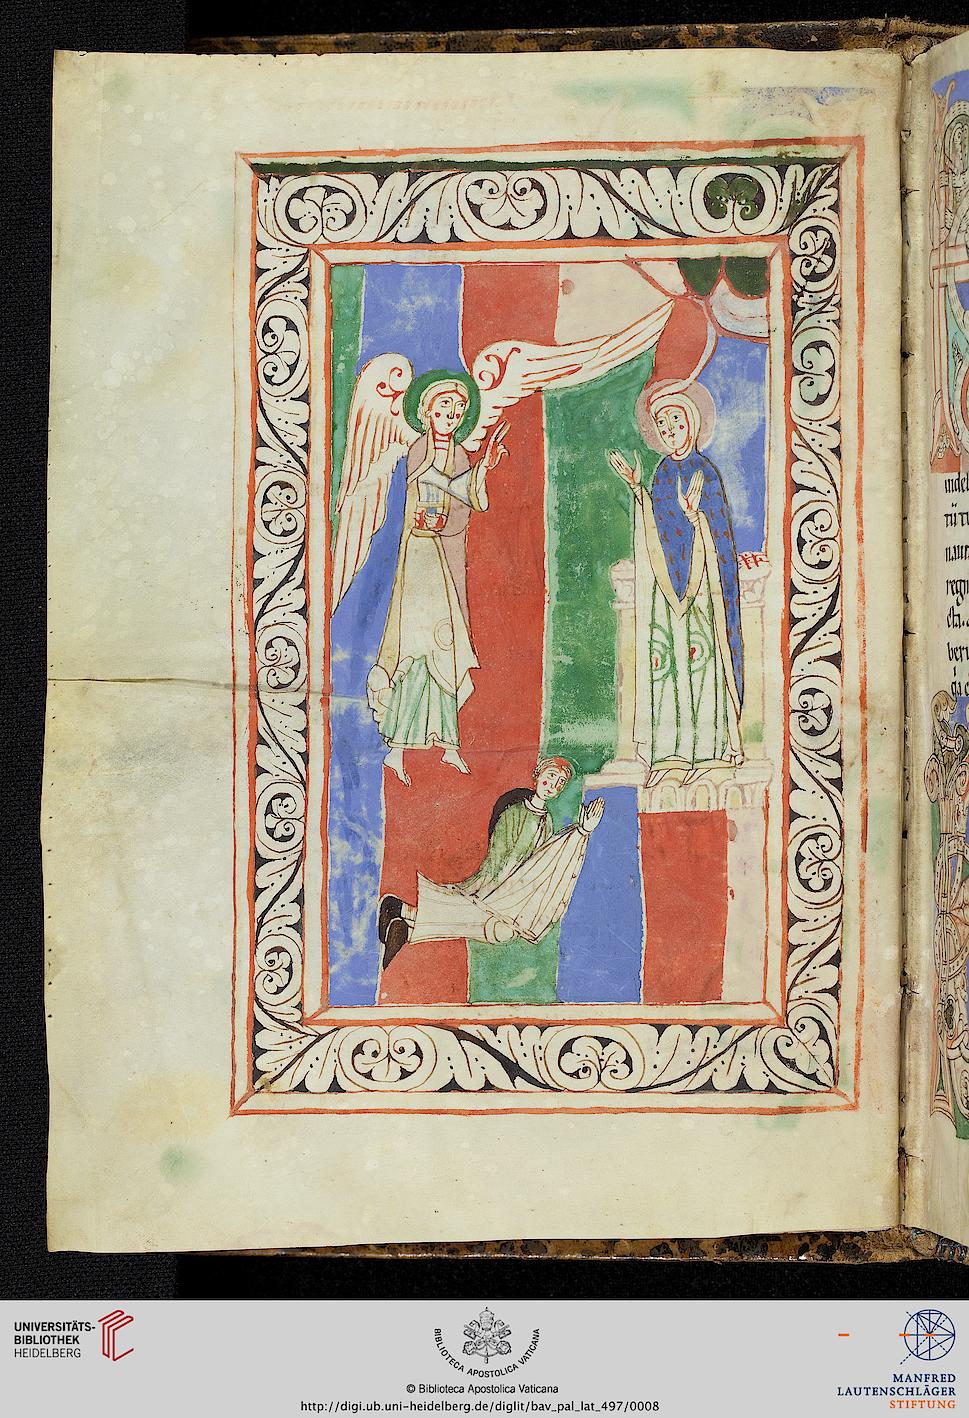 UNIVERSITÄTS-
BIBLIOTHEK
HEIDELBERG
BIBLIOTECA APOSTOLICA VATICANA
© Biblioteca Apostolica Vaticana
http://digi.ub.uni-heidelberg.de/diglit/bav_pal_lat_497/0008
MANFRED
LAUTENSCHLÄGER
STIFTUNG